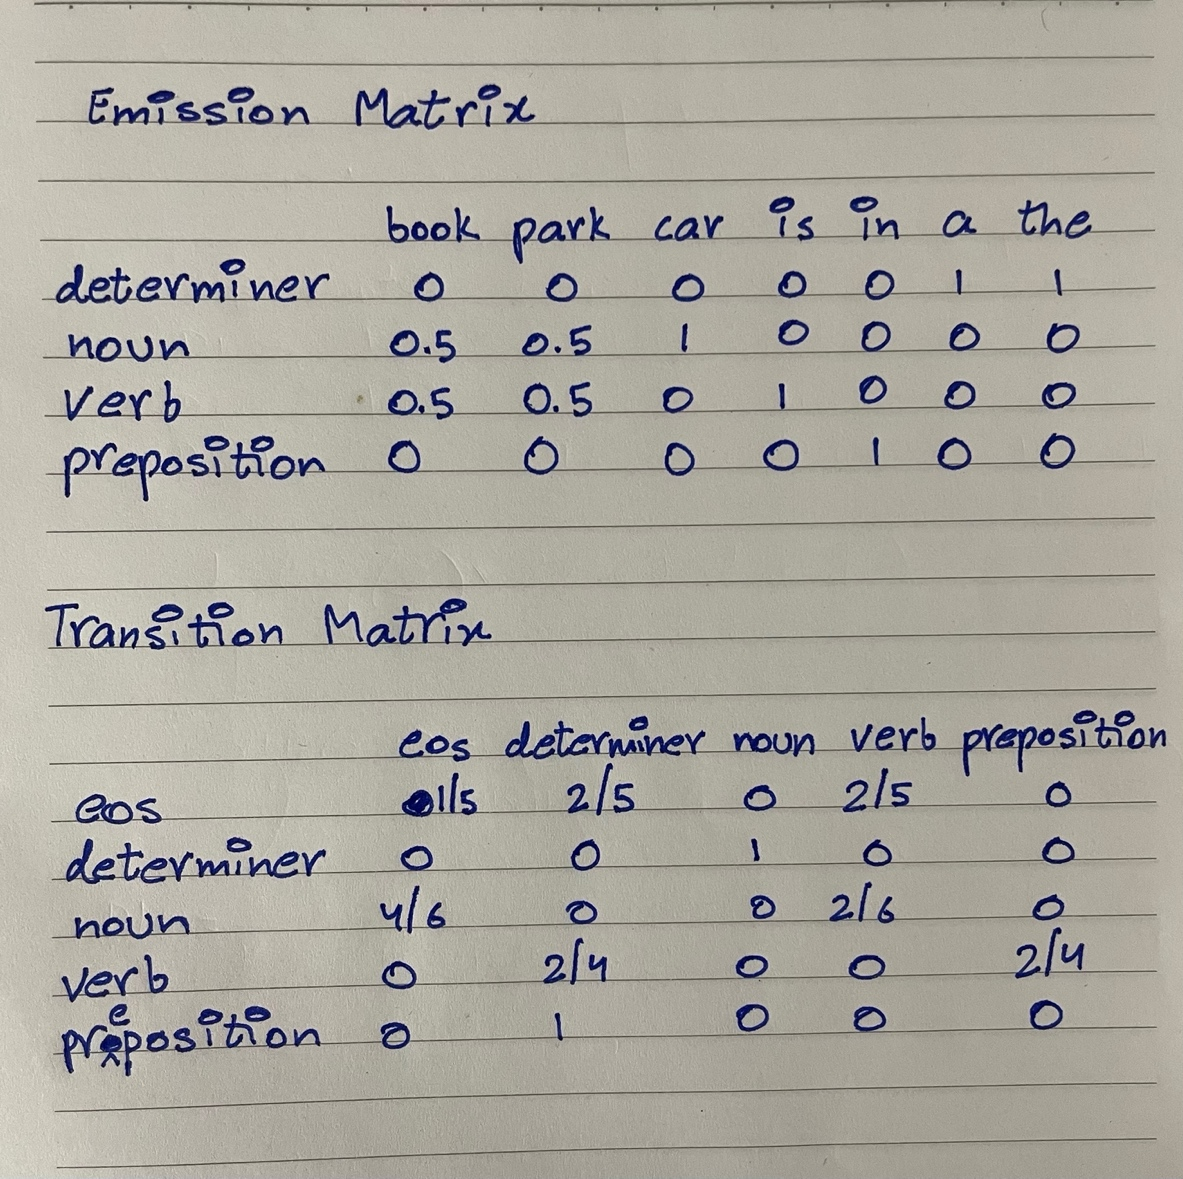 Emission Matrix
book park car is in a the
determiner 0 0 0 0 0 1 1
noun 0.5 0.5 1 0 0 0 0
verb 0.5 0.5 0 1 0 0 0
preposition 0 0 0 0 1 0 0
Transition Matrix
eos determiner noun verb preposition
eos 1/5 2/5 0 2/5 0
determiner 0 0 1 0 0
noun 4/6 0 0 2/6 0
verb 0 2/4 0 0 2/4
preposition 0 1 0 0 0